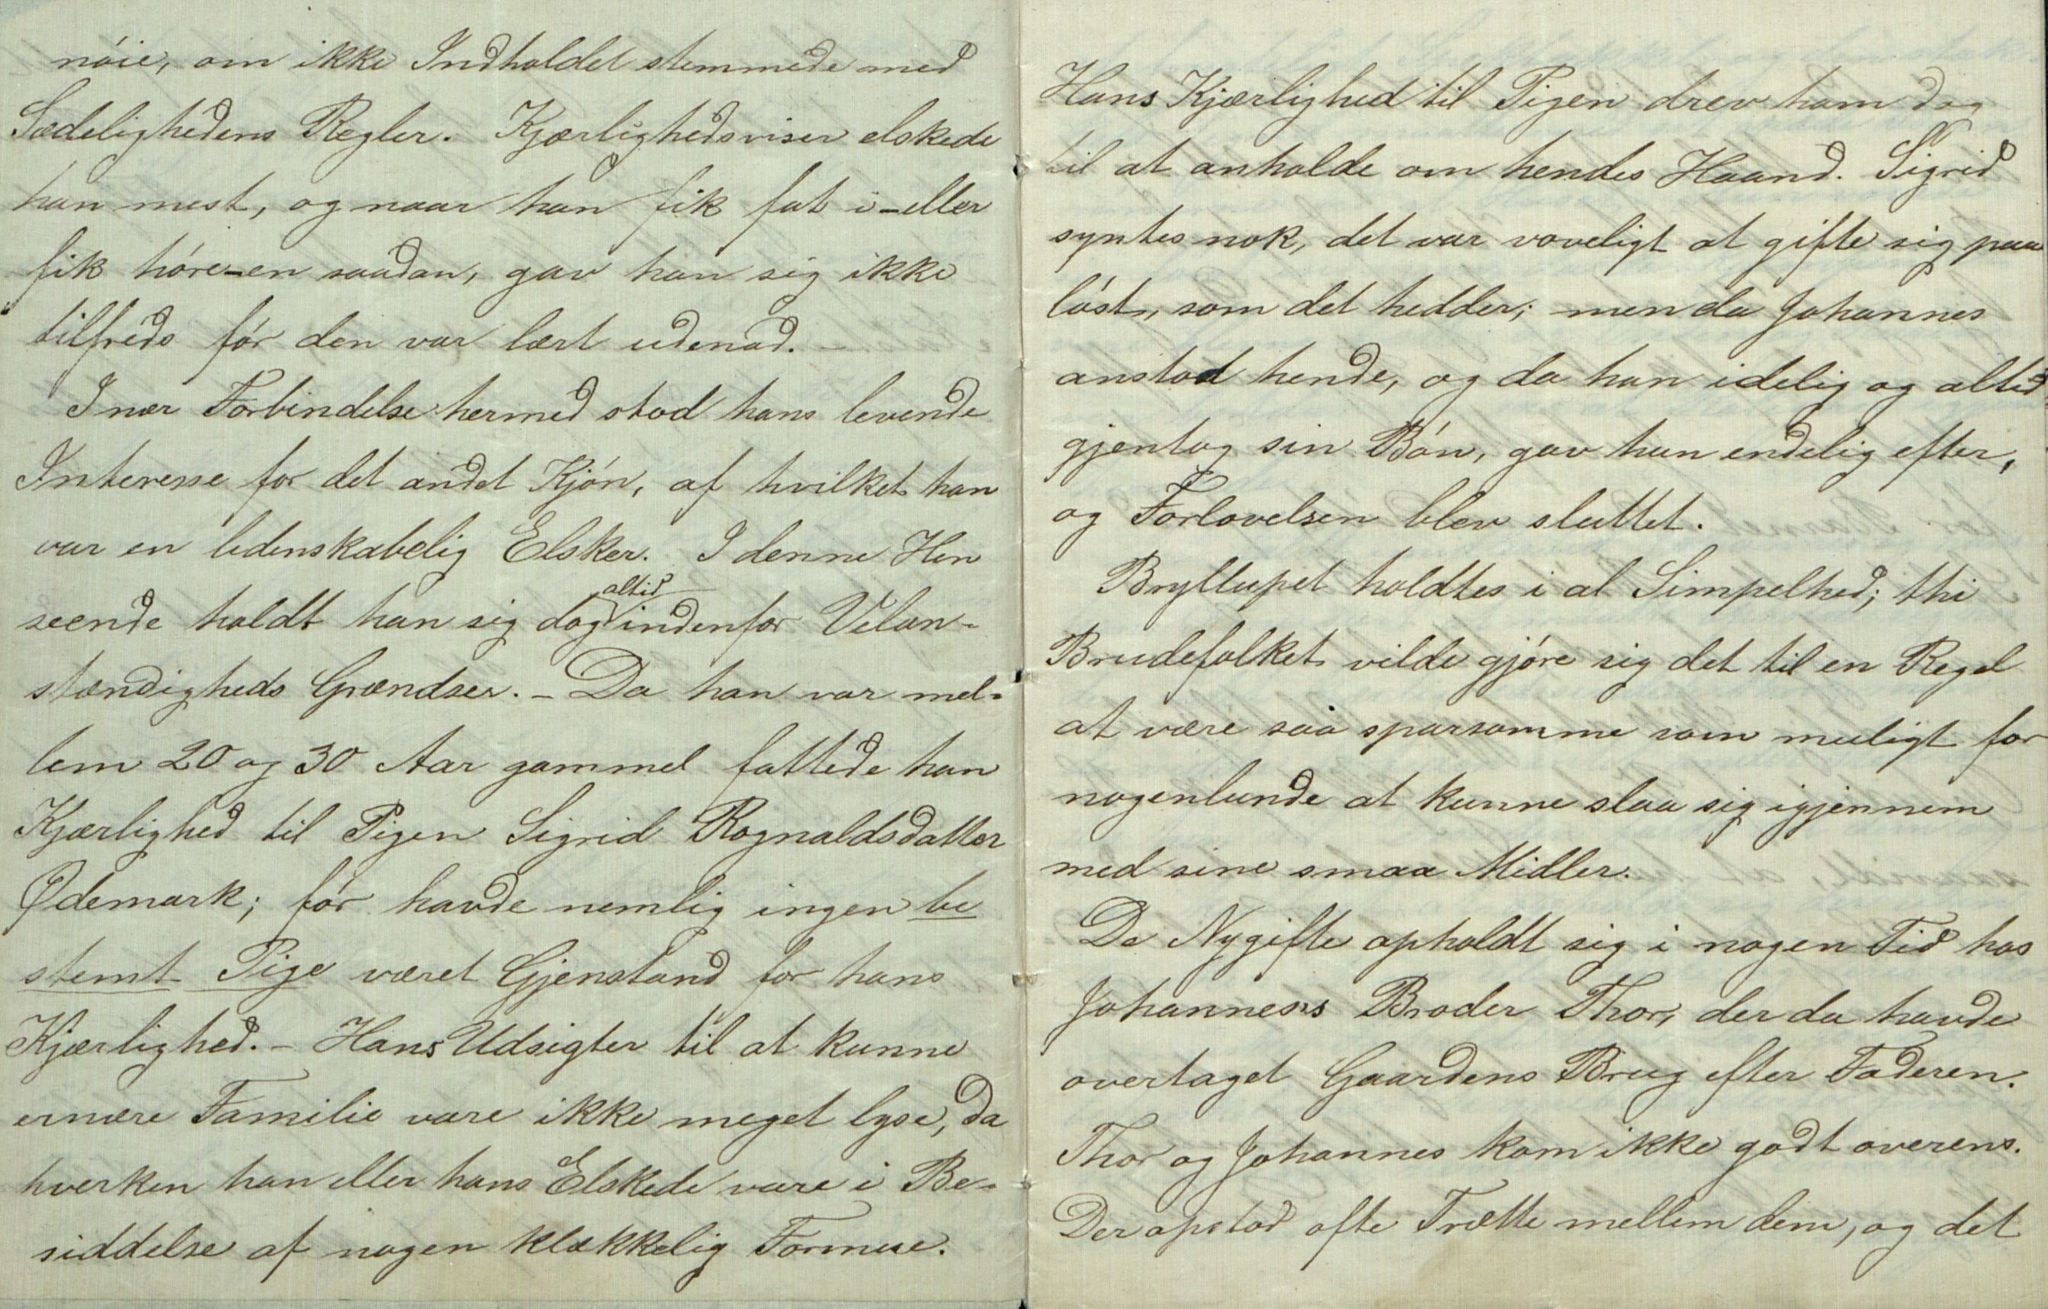 nóie, om ikke Indholdet stemmede med
Sædelighedens Regler. Kjærlighedsviser elskede
han mest, og naar han fik fat i – eller
fik høre – en saadan, gav han sig ikke
tilfreds før den var lært udenad. –
I nær Forbindelse hermed stod hans levende
Interesse for det andet Kjón, af hvilket han
var en lidenskabelig Elsker. I denne Hen
seende holdt han sig dog altid indenfor Velan-
stændigheds Grændser. – Da han var mel-
lem 20 og 30 Aar gammel fattede han
Kjærlighed til Pigen Sigrid Rognaldsdatter
Ødemark; før havde nemlig ingen be
stemt Pige været Gjenstand for hans
Kjærlighed. – Hans Udsigter til at kunne
ernære Familie vare ikke meget lyse, da
hverken han eller hans Elskede vare i Be-
siddelse af nogen klækkelig Formue.
Hans Kjærlighed til Pigen drev ham dog
til at anholde om hendes Haand. Sigrid
syntes nok, det var voveligt at gifte sig paa
lóst, som det hedder; men da Johannes
anstod hende, og da han idelig og altid
gjentog sin Bón, gav hun endelig efter,
og Forlovelsen blev sluttet.
Bryllupet holdtes i al Simpelhed; thi
Brudefolket vilde gjóre sig det til en Regel
at være saa sparsomme som muligt for
nogenlunde at kunne slaa sig igjennem
med sine smaa Midler.
De Nygifte opholdt sig i nogen Tid hos
Johanness Broder Thor, der da havde
overtaget Gaardens Brug efter Faderen.
Thor og Johannes kom ikke godt overens.
Der opstod ofte Trætte mellem dem, og det